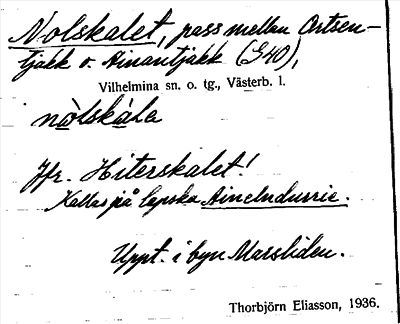 Nolskalet, pass mellan Artsen-
tjakk o. Ainantjakk (G40),
Vilhelmina sn. o. tg., Västerb. l.
nòlskàla
Jfr. Hiterskalet!
Kallas på lapska Ainelndurrie.
Uppt. i byn Marsliden.
Thorbjörn Eliasson, 1936.